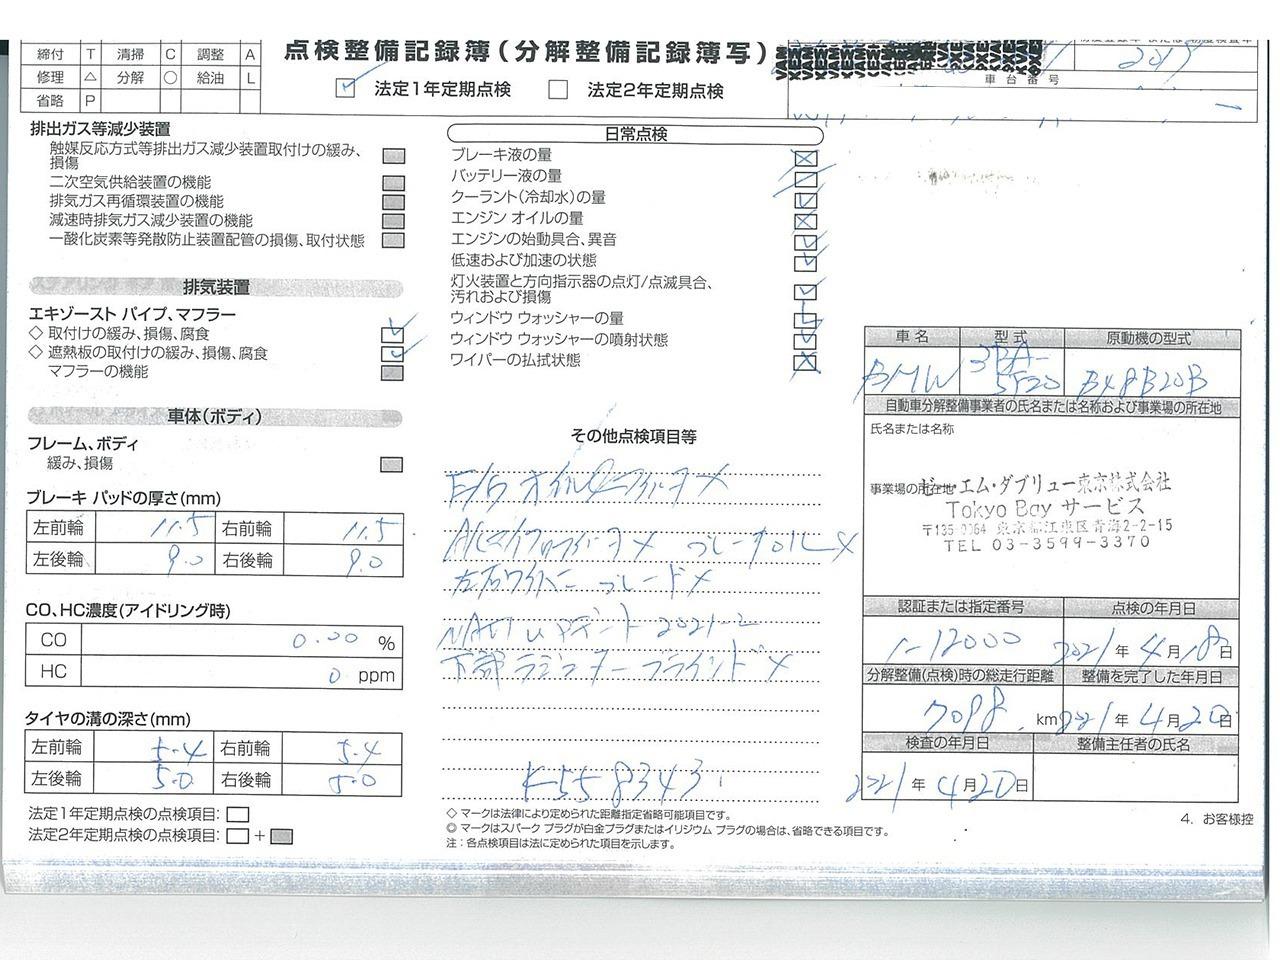 締付 T 清掃 C 調整 A
修理 △ 分解 ○ 給油 L
省略 P
点検整備記録簿(分解整備記録簿写)
法定1年定期点検 法定2年定期点検
2019
車台番号
排出ガス等減少装置
触媒反応方式等排出ガス減少装置取付けの緩み、
損傷
二次空気供給装置の機能
排気ガス再循環装置の機能
減速時排気ガス減少装置の機能
一酸化炭素等発散防止装置配管の損傷、取付状態
排気装置
エキゾースト パイプ、マフラー
◇ 取付けの緩み、損傷、腐食
◇ 遮熱板の取付けの緩み、損傷、腐食
マフラーの機能
車体(ボディ)
フレーム、ボディ
緩み、損傷
ブレーキ パッドの厚さ(mm)
左前輪 11.5 右前輪 11.5
左後輪 9.0 右後輪 9.0
CO、HC濃度(アイドリング時)
CO 0.00 %
HC 0 ppm
タイヤの溝の深さ(mm)
左前輪 5.4 右前輪 5.4
左後輪 5.0 右後輪 5.0
法定1年定期点検の点検項目:
法定2年定期点検の点検項目: +
日常点検
ブレーキ液の量
バッテリー液の量
クーラント(冷却水)の量
エンジン オイルの量
エンジンの始動具合、異音
低速および加速の状態
灯火装置と方向指示器の点灯/点滅具合、
汚れおよび損傷
ウィンドウ ウォッシャーの量
ウィンドウ ウォッシャーの噴射状態
ワイパーの払拭状態
その他点検項目等
E/G オイル
左右ワイパー ブレード×
2021-2
下部ラジエターブラインド×
558343
◇ マークは法律により定められた距離指定省略可能項目です。
◎ マークはスパーク プラグが白金プラグまたはイリジウム プラグの場合は、省略できる項目です。
注:各点検項目は法に定められた項目を示します。
車名 型式 原動機の型式
BMW 3BA-5F20 B48B20B
自動車分解整備事業者の氏名または名称および事業場の所在地
氏名または名称
事業場の所在地
ビー・エム・ダブリュー東京株式会社
Tokyo Bay サービス
〒135-0064 東京都江東区青海2-2-15
TEL 03-3599-3370
認証または指定番号 点検の年月日
1-12000 2021 年 4 月 18 日
分解整備(点検)時の総走行距離 整備を完了した年月日
7098 km 2021 年 4 月 20 日
検査の年月日 整備主任者の氏名
2021 年 4 月 20 日
4. お客様控